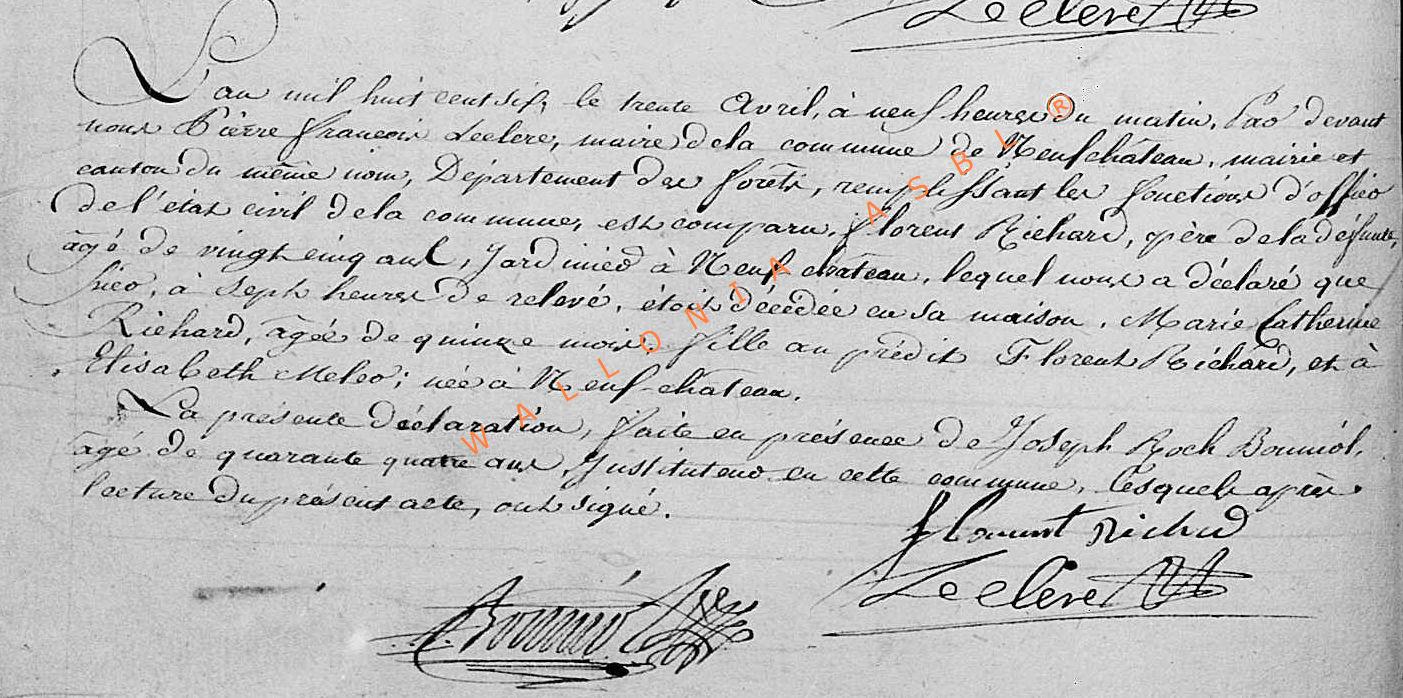 Leclere
L'an mil huit cent six, le trente Avril, à neuf heures du matin, Par devant
nous Pierre françois Leclere, maire de la commune de Neufchâteau, mairie et
canton du même nom, Département des forêts, remplissant les fonctions d'officier
de l'état civil de la commune, est comparu, florent Richard, père de la défunte,
âgé de vingt cinq ans, Jardinier à Neufchateau, lequel nous a déclaré que
hier, à sept heures de relevé, étoit décédée en sa maison, Marie Catherine
Richard, âgée de quinze mois, fille au prédit Florent Richard, et à
Elisabeth Meler; née à Neufchâteau.
La présente déclaration, faite en présence de Joseph Roch Bouniol,
âgé de quarante quatre ans, Instituteur en cette commune, lesquels après
lecture du présent acte, ont signé.
florent Richard
Leclere
Bouniol
WALLONIA ASBL ®